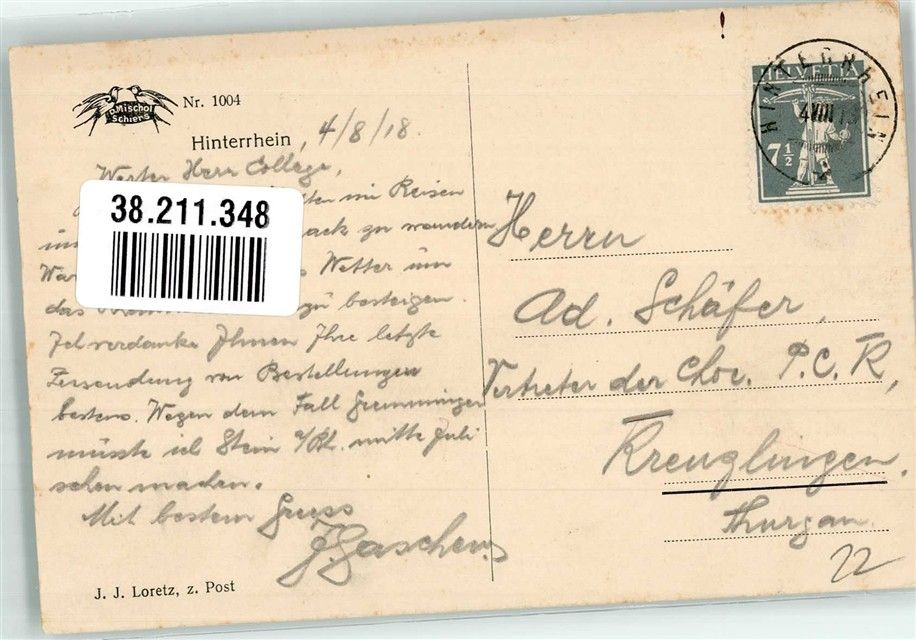 Nr. 1004
P. Mischol
Schiers
Hinterrhein, 4/8/18.
Werter Herr College,
mi Reisen
ack zu wandern
War Wetter um
das zu besteigen.
Ich verdanke Ihnen Ihre letzte
Zusendung von Bestellungen
bestens. Wegen dem Fall
müsste ich Stein a/Rh. mitte Juli
schon machen.
Mit bestem Gruss
J. J. Loretz, z. Post
38.211.348
HELVETIA
7½
HINTERRHEIN
4 VIII
Herrn
Ad. Schäfer,
Vertreter der Choc. P. C. K,
Kreuzlingen.
Thurgau.
22